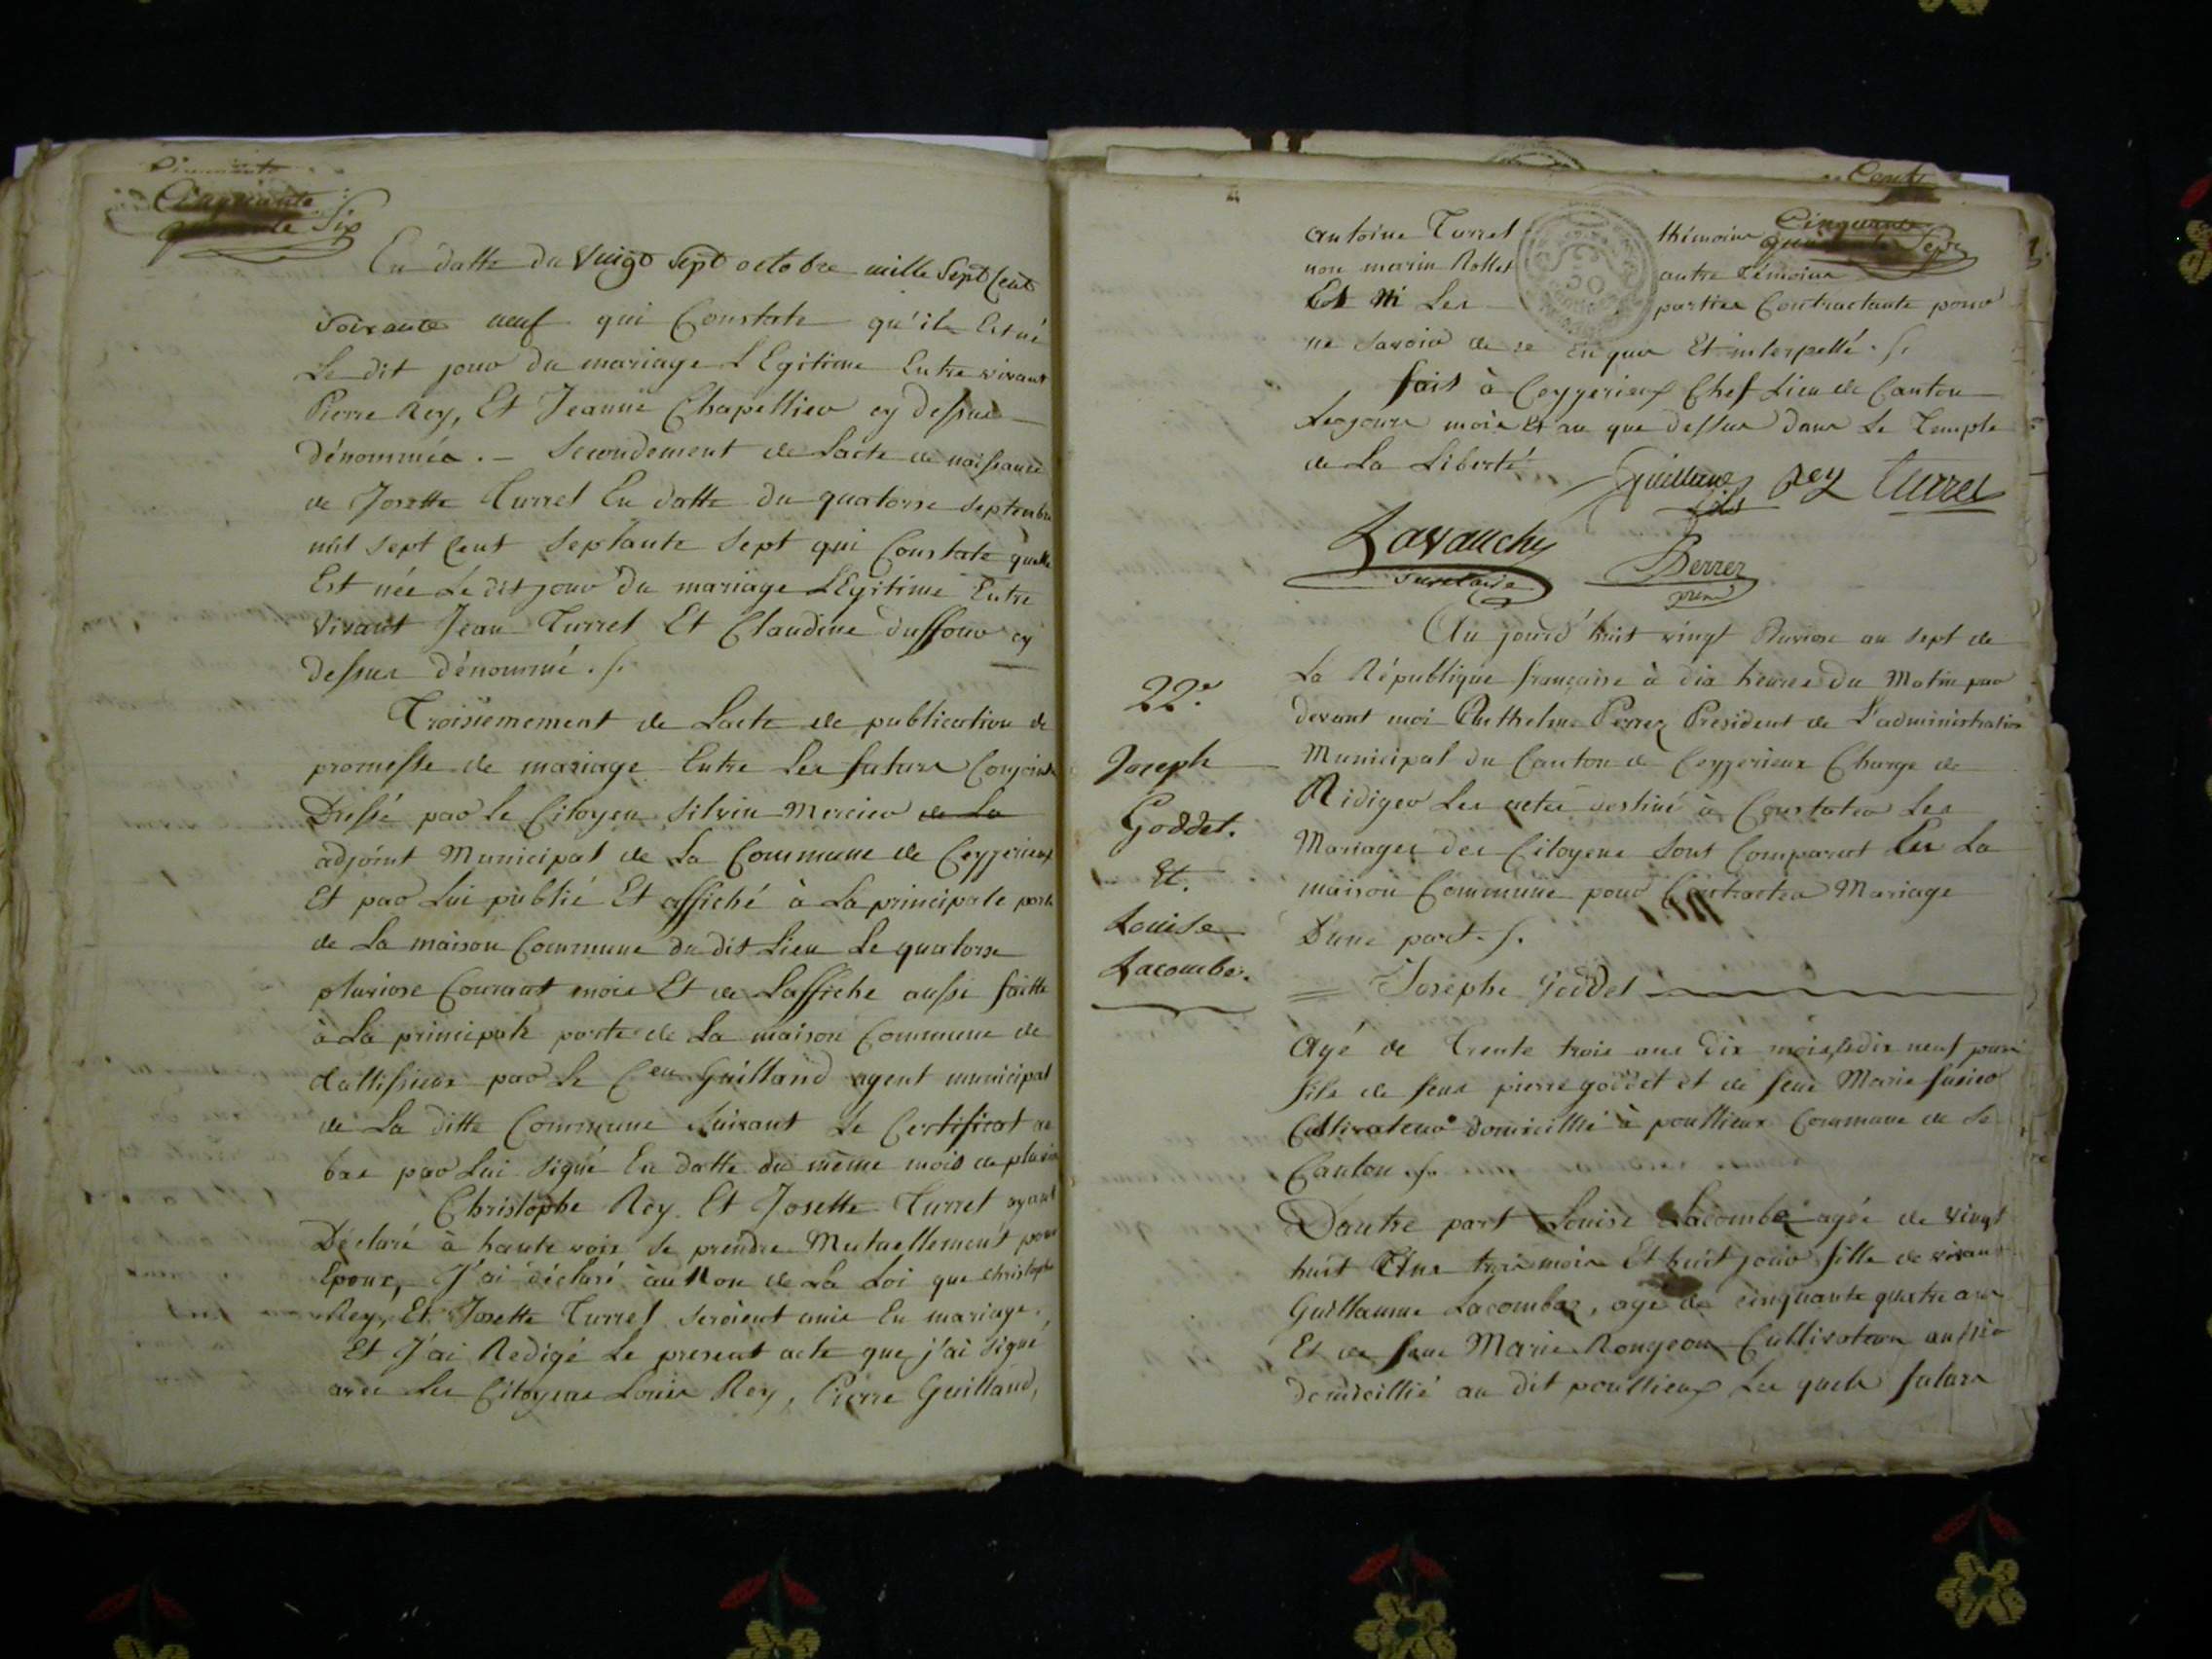 Cinquante
Six
En datte du Vingt Sept octobre mille Sept Cent
Soixante neuf qui Constate qu'il Est né
Le dit jour du mariage LEgitime Entre vivant
Pierre Rey, Et Jeanne Chapellier cy dessus
dénommée. — Secondement de Lacte de naissance
de Josette Turrel En datte du quatorze Septembre
mil Sept Cent Septante Sept qui Constate quelle
Est née Le dit jour du mariage LEgitime Entre
Vivant Jean Turrel Et Claudine duffour cy
dessus dénommé.
Troisiemement de Lacte de publication de
promesse de mariage Entre Les futurs Conjoints
Dressé par le Citoyen Silvin Mercier de La
adjoint Municipal de La Commune de Ceyzerieux
Et par Lui publié Et affiché à La principale porte
de La maison Commune du dit Lieu Le quatorze
pluviose Courant mois Et de Laffiche aussi faitte
à La principale porte de La maison Commune de
par Le Cen Guilland agent municipal
de La ditte Commune Suivant Le Certificat au
bas par Lui Signé En datte du même mois de
Christophe Rey. Et Josette Turrel ayant
Déclaré à haute voix Se prendre Mutuellement pour
Epoux, J'ai déclaré au Non de La Loi que Christophe
Rey, Et Josette Turrel Seroient unis En mariage,
Et J'ai Redigé Le present acte que j'ai Signé
avec Les Citoyens Louis Rey, Pierre Guilland,
Cinquante
Sept
antoine Turrel thémoins
non marin Rollet autre témoins
Et ni Les parties Contractante pour
ne Savoir de ce Enquis Et interpellé.
fait à Ceyzerieux Chef Lieu de Canton
Les jours mois Et an que dessus Dans Le Temple
de La Liberté
Guilland Rey Turrel
fils
Lavauchy
Secretaire
Perrez
Au jourd'huit vingt Pluviose an Sept de
La République française à dix heures Du Matin par
devant moi Anthelme Perrez President de L'administration
Municipal du Canton de Ceyzerieux Charge de
Rédiger Les actes destiné à Constater Les
Mariages des Citoyens Sont Comparut En La
maison Commune pour Contracter Mariage
D'une part.
Josephe Goddet
22e
Joseph
Goddet.
Et.
Louise
Lacombe.
Agé de Trente trois ans Dix mois, dix neuf jours
fils de feus pierre goddet et de feue Marie
Cultivateur domicillié à poullieux Commune de Se
Canton.
D'autre part Louise Lacombe agée de Vingt
huit Ans trois mois Et huit jour fille de vivant
Guillaume Lacombe, agé de Cinquante quatre ans
Et de feue Marie Rongeon Cultivateur aussi
domicillié au dit poullieux Les quels futurs